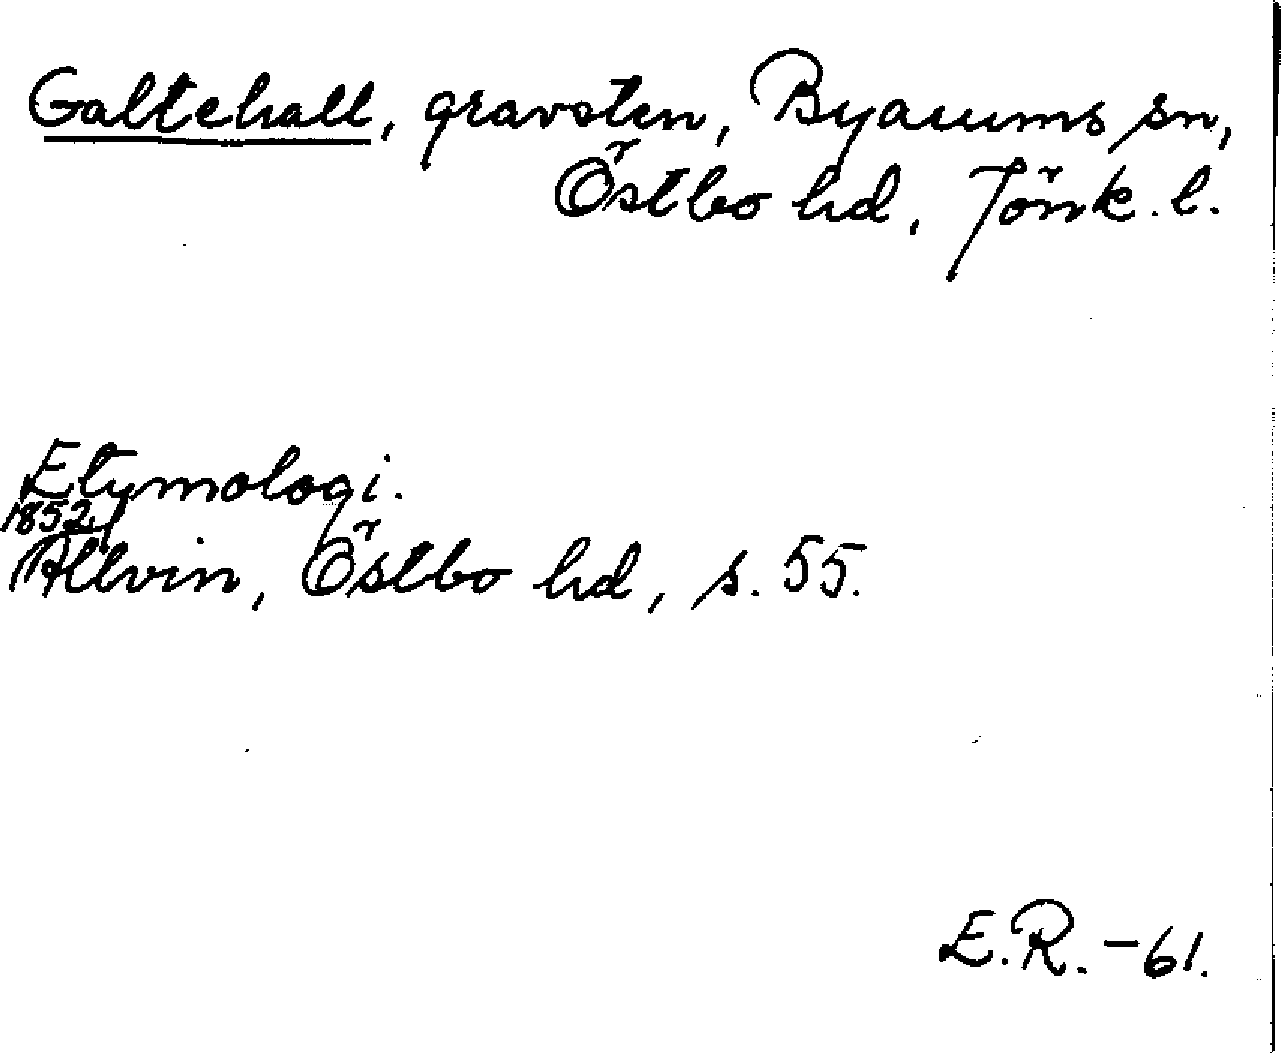 Galtehall, gravsten, Byarums sn,
Östbo hd, Jönk. l.
Etymologi.
1852.
Allvin, Östbo hd, s. 55.
E.R. -61.